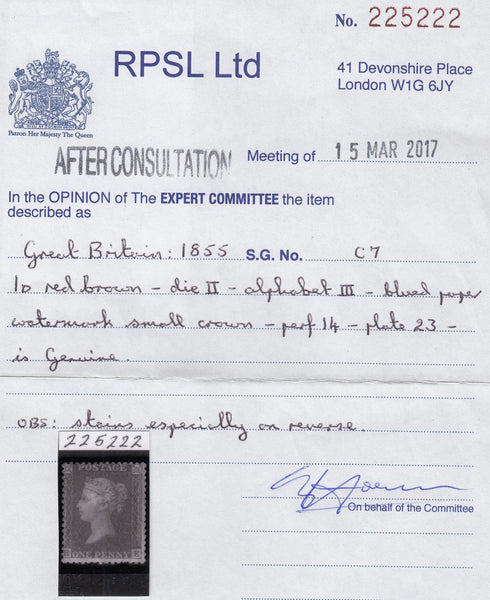 No. 225222
RPSL Ltd
41 Devonshire Place
London W1G 6JY
Patron Her Majesty The Queen
AFTER CONSULTATION
Meeting of 15 MAR 2017
In the OPINION of The EXPERT COMMITTEE the item
described as
Great Britain: 1855 S.G. No. C7
1D red brown - die II - alphabet III - blued paper
watermark small crown - perf 14 - plate 23 -
is Genuine.
OBS: stains especially on reverse.
225222
POSTAGE
ONE PENNY
E
On behalf of the Committee